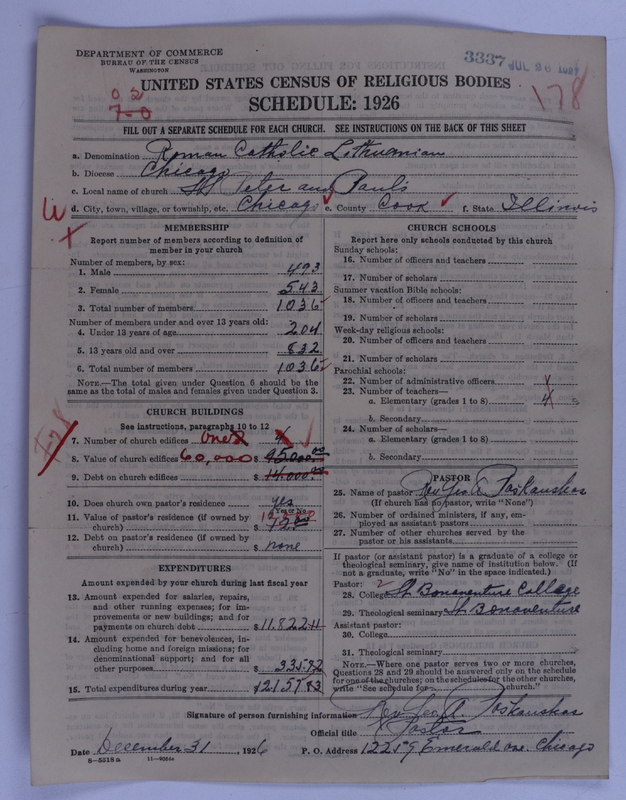 DEPARTMENT OF COMMERCE
BUREAU OF THE CENSUS
WASHINGTON
3337 JUL 26 1927
178
UNITED STATES CENSUS OF RELIGIOUS BODIES
SCHEDULE: 1926
0 2
7-0
FILL OUT A SEPARATE SCHEDULE FOR EACH CHURCH. SEE INSTRUCTIONS ON THE BACK OF THIS SHEET
a. Denomination Roman Catholic Lithuanian
b. Diocese Chicago
c. Local name of church St. Peter and Paul's
d. City, town, village, or township, etc. Chicago e. County Cook f. State Illinois
MEMBERSHIP
Report number of members according to definition of
member in your church
Number of members, by sex:
1. Male 493
2. Female 543
3. Total number of members 1036
Number of members under and over 13 years old:
4. Under 13 years of age 204
5. 13 years old and over 832
6. Total number of members 1036
NOTE.—The total given under Question 6 should be the
same as the total of males and females given under Question 3.
CHURCH BUILDINGS
See instructions, paragraphs 10 to 12
7. Number of church edifices one
8. Value of church edifices 60,000 $ 95000.00
9. Debt on church edifices $ 14000.00
10. Does church own pastor's residence? yes
11. Value of pastor's residence (if owned by
church) $
12. Debt on pastor's residence (if owned by
church) $ none
EXPENDITURES
Amount expended by your church during last fiscal year
13. Amount expended for salaries, repairs,
and other running expenses; for im-
provements or new buildings; and for
payments on church debt $ 11.822.11
14. Amount expended for benevolences, in-
cluding home and foreign missions; for
denominational support; and for all
other purposes $ 335.82
15. Total expenditures during year $ 12157.93
CHURCH SCHOOLS
Report here only schools conducted by this church
Sunday schools:
16. Number of officers and teachers
17. Number of scholars
Summer vacation Bible schools:
18. Number of officers and teachers
19. Number of scholars
Week-day religious schools:
20. Number of officers and teachers
21. Number of scholars
Parochial schools:
22. Number of administrative officers
23. Number of teachers—
a. Elementary (grades 1 to 8) 4
b. Secondary
24. Number of scholars—
a. Elementary (grades 1 to 8)
b. Secondary
PASTOR
25. Name of pastor Rev. Geo. A. Paskauskas
(If church has no pastor, write "None")
26. Number of ordained ministers, if any, em-
ployed as assistant pastors
27. Number of other churches served by the
pastor or his assistants
If pastor (or assistant pastor) is a graduate of a college or
theological seminary, give name of institution below. (If
not a graduate, write "No" in the space indicated.)
Pastor:
28. College St. Bonaventure College
29. Theological seminary St. Bonaventure
Assistant pastor:
30. College
31. Theological seminary
NOTE.—Where one pastor serves two or more churches,
Questions 28 and 29 should be answered only on the schedule
for one of the churches; on the schedules for the other churches,
write "See schedule for church."
Signature of person furnishing information Rev. Geo. A. Paskauskas
Official title Pastor
Date December 31, 1926 P. O. Address 12259 Emerald ave. Chicago
8—5518 a